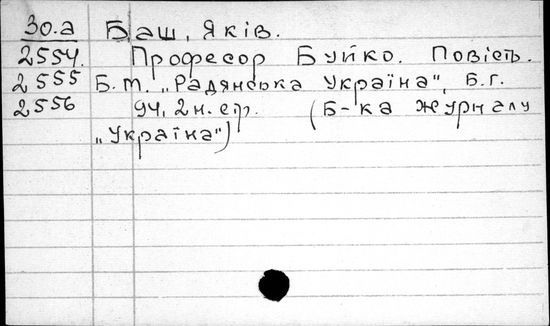 30.а Баш, Яків.
2554. Професор Буйко. Повість.
2555 Б.м. „Радянська Україна", б.г.
2556 94, 2н. стр. (Б-ка журналу
„Україна")